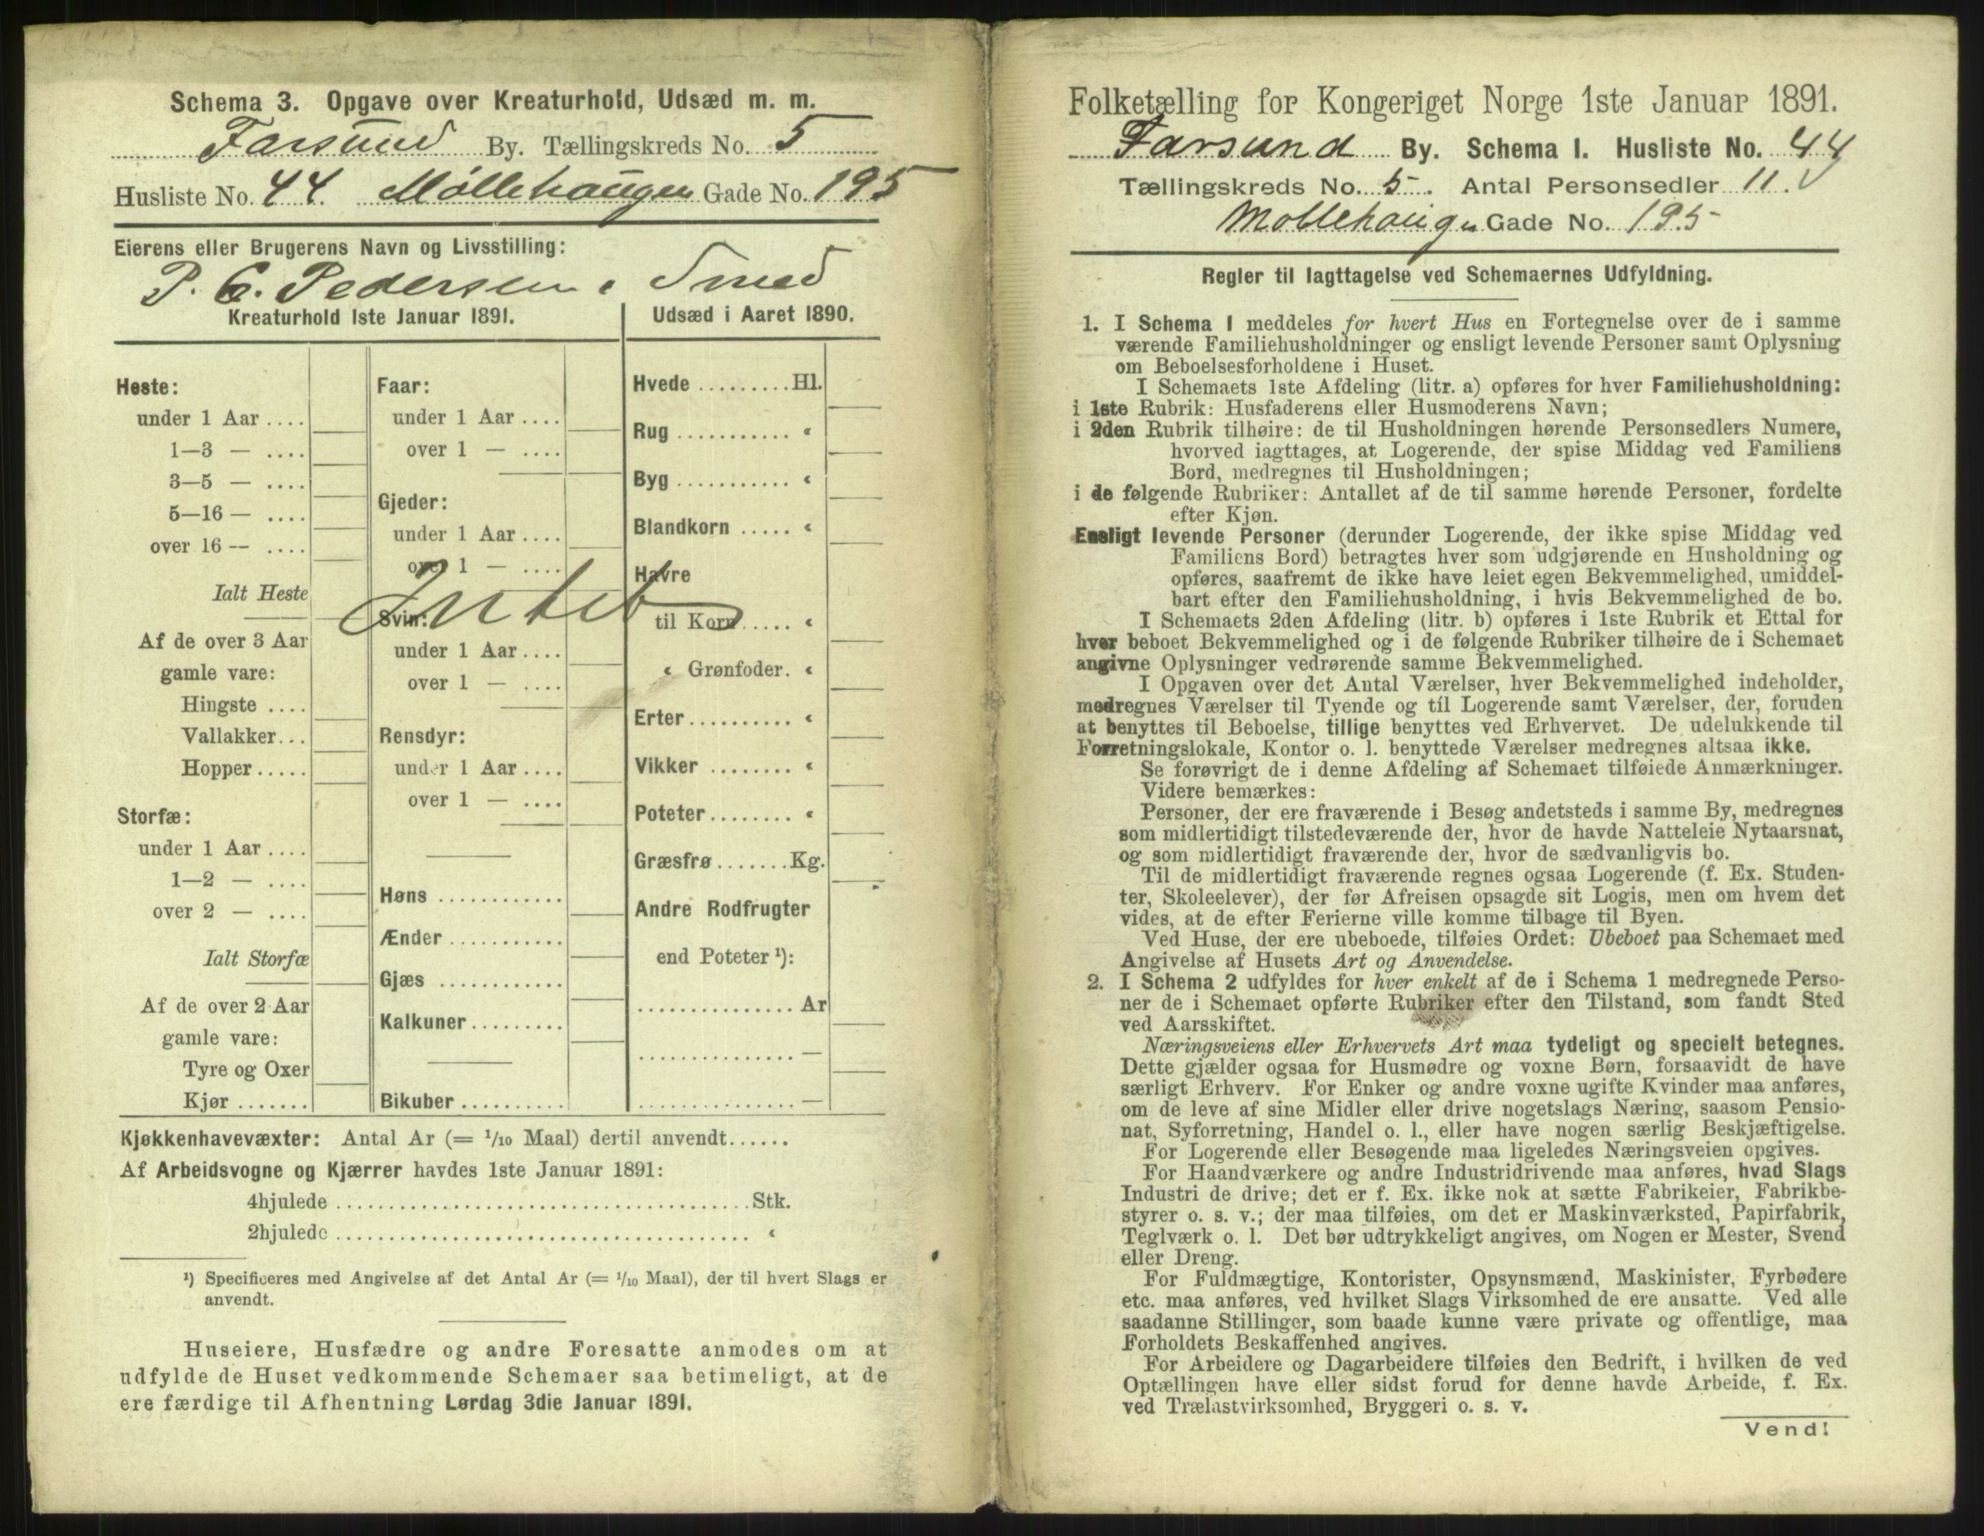 Schema 3. Opgave over Kreaturhold, Udsæd m. m.
Farsund By. Tællingskreds No. 5
Husliste No. 44. Møllehaugen Gade No. 195
Eierens eller Brugerens Navn og Livsstilling:
P. C. Pedersen, Smed
Kreaturhold 1ste Januar 1891.
Heste:
under 1 Aar ....
1—3 — ....
3—5 — ....
5—16 — ....
over 16 — ....
Ialt Heste
Af de over 3 Aar
gamle vare:
Hingste ....
Vallakker...
Hopper.....
Storfæ:
under 1 Aar ....
1—2 — ....
over 2 — ....
Ialt Storfæ
Af de over 2 Aar
gamle vare:
Tyre og Oxer
Kjør .......
Faar:
under 1 Aar ....
over 1 — ....
Gjeder:
under 1 Aar ....
over 1 — ....
Intet
Svin:
under 1 Aar ....
over 1 — ....
Rensdyr:
under 1 Aar ....
over 1 — ....
Høns ............
Ænder ...........
Gjæs ............
Kalkuner .........
Bikuber ..........
Udsæd i Aaret 1890.
Hvede .........Hl.
Rug ........... “
Byg ........... “
Blandkorn ..... “
Havre
til Korn ..... “
“ Grønfoder. “
Erter.......... “
Vikker ........ “
Poteter ........ “
Græsfrø .......Kg.
Andre Rodfrugter
end Poteter ¹):
.............. Ar
.............. —
.............. —
Kjøkkenhavevæxter: Antal Ar (= 1/10 Maal) dertil anvendt......
Af Arbeidsvogne og Kjærrer havdes 1ste Januar 1891:
4hjulede ......................................Stk.
2hjulede ...................................... “
¹) Specificeres med Angivelse af det Antal Ar (= 1/10 Maal), der til hvert Slags er
anvendt.
Huseiere, Husfædre og andre Foresatte anmodes om at
udfylde de Huset vedkommende Schemaer saa betimeligt, at de
ere færdige til Afhentning Lørdag 3die Januar 1891.
Folketælling for Kongeriget Norge 1ste Januar 1891.
Farsund By. Schema I. Husliste No. 44
Tællingskreds No. 5. Antal Personsedler 11.
Møllehaugen Gade No. 195
Regler til Iagttagelse ved Schemaernes Udfyldning.
1. I Schema 1 meddeles for hvert Hus en Fortegnelse over de i samme
værende Familiehusholdninger og ensligt levende Personer samt Oplysning
om Beboelsesforholdene i Huset.
I Schemaets 1ste Afdeling (litr. a) opføres for hver Familiehusholdning:
i 1ste Rubrik: Husfaderens eller Husmoderens Navn;
i 2den Rubrik tilhøire: de til Husholdningen hørende Personsedlers Numere,
hvorved iagttages, at Logerende, der spise Middag ved Familiens
Bord, medregnes til Husholdningen;
i de følgende Rubriker: Antallet af de til samme hørende Personer, fordelte
efter Kjøn.
Ensligt levende Personer (derunder Logerende, der ikke spise Middag ved
Familiens Bord) betragtes hver som udgjørende en Husholdning og
opføres, saafremt de ikke have leiet egen Bekvemmelighed, umiddel-
bart efter den Familiehusholdning, i hvis Bekvemmelighed de bo.
I Schemaets 2den Afdeling (litr. b) opføres i 1ste Rubrik et Ettal for
hver beboet Bekvemmelighed og i de følgende Rubriker tilhøire de i Schemaet
angivne Oplysninger vedrørende samme Bekvemmelighed.
I Opgaven over det Antal Værelser, hver Bekvemmelighed indeholder,
medregnes Værelser til Tyende og til Logerende samt Værelser, der, foruden
at benyttes til Beboelse, tillige benyttes ved Erhvervet. De udelukkende til
Forretningslokale, Kontor o. l. benyttede Værelser medregnes altsaa ikke.
Se forøvrigt de i denne Afdeling af Schemaet tilføiede Anmærkninger.
Videre bemærkes:
Personer, der ere fraværende i Besøg andetsteds i samme By, medregnes
som midlertidigt tilstedeværende der, hvor de havde Natteleie Nytaarsnat,
og som midlertidigt fraværende der, hvor de sædvanligvis bo.
Til de midlertidigt fraværende regnes ogsaa Logerende (f. Ex. Studen-
ter, Skoleelever), der før Afreisen opsagde sit Logis, men om hvem det
vides, at de efter Ferierne ville komme tilbage til Byen.
Ved Huse, der ere ubeboede, tilføies Ordet: Ubeboet paa Schemaet med
Angivelse af Husets Art og Anvendelse.
2. I Schema 2 udfyldes for hver enkelt af de i Schema 1 medregnede Perso-
ner de i Schemaet opførte Rubriker efter den Tilstand, som fandt Sted
ved Aarsskiftet.
Næringsveiens eller Erhvervets Art maa tydeligt og specielt betegnes.
Dette gjælder ogsaa for Husmødre og voxne Børn, forsaavidt de have
særligt Erhverv. For Enker og andre voxne ugifte Kvinder maa anføres,
om de leve af sine Midler eller drive nogetslags Næring, saasom Pensio-
nat, Syforretning, Handel o. l., eller have nogen særlig Beskjæftigelse.
For Logerende eller Besøgende maa ligeledes Næringsveien opgives.
For Haandværkere og andre Industridrivende maa anføres, hvad Slags
Industri de drive; det er f. Ex. ikke nok at sætte Fabrikeier, Fabrikbe-
styrer o. s. v.; der maa tilføies, om det er Maskinværksted, Papirfabrik,
Teglværk o. l. Det bør udtrykkeligt angives, om Nogen er Mester, Svend
eller Dreng.
For Fuldmægtige, Kontorister, Opsynsmænd, Maskinister, Fyrbødere
etc. maa anføres, ved hvilket Slags Virksomhed de ere ansatte. Ved alle
saadanne Stillinger, som baade kunne være private og offentlige, maa
Forholdets Beskaffenhed angives.
For Arbeidere og Dagarbeidere tilføies den Bedrift, i hvilken de ved
Optællingen have eller sidst forud for denne havde Arbeide, f. Ex.
ved Trælastvirksomhed, Bryggeri o. s. v.
Vend!